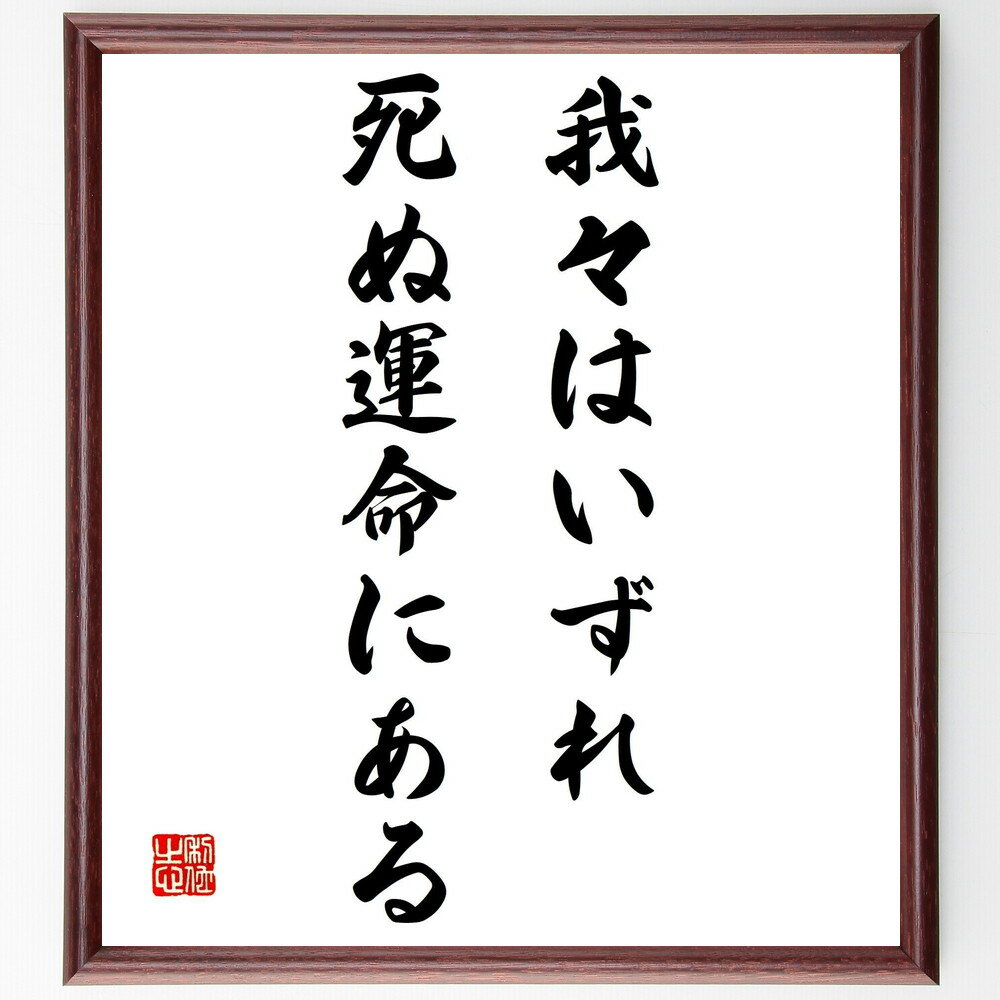 我々はいずれ
死ぬ運命にある